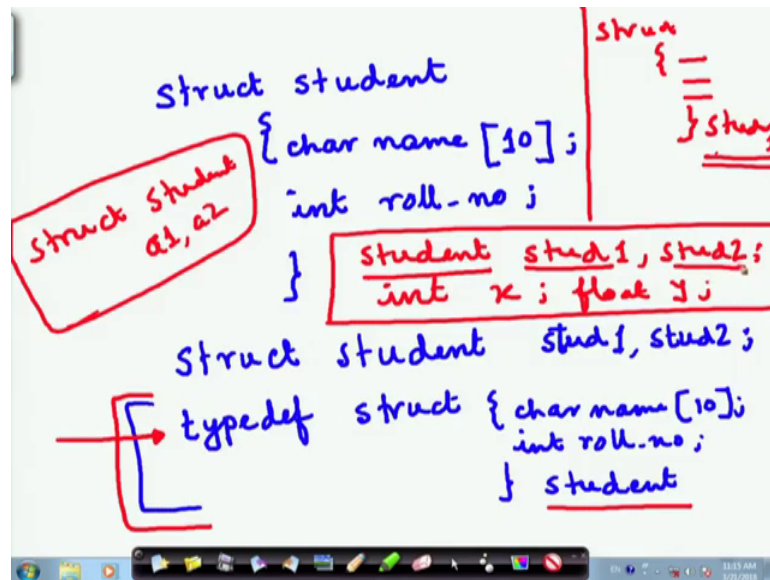 struct student
{ char name [10] ;
int roll_no ;
}
struct student
a1, a2
struc
{
} stud1
student stud1, stud2 ;
int x ; float y ;
struct student stud1, stud2 ;
typedef struct { char name [10] ;
int roll_no ;
} student
EN
11:15 AM